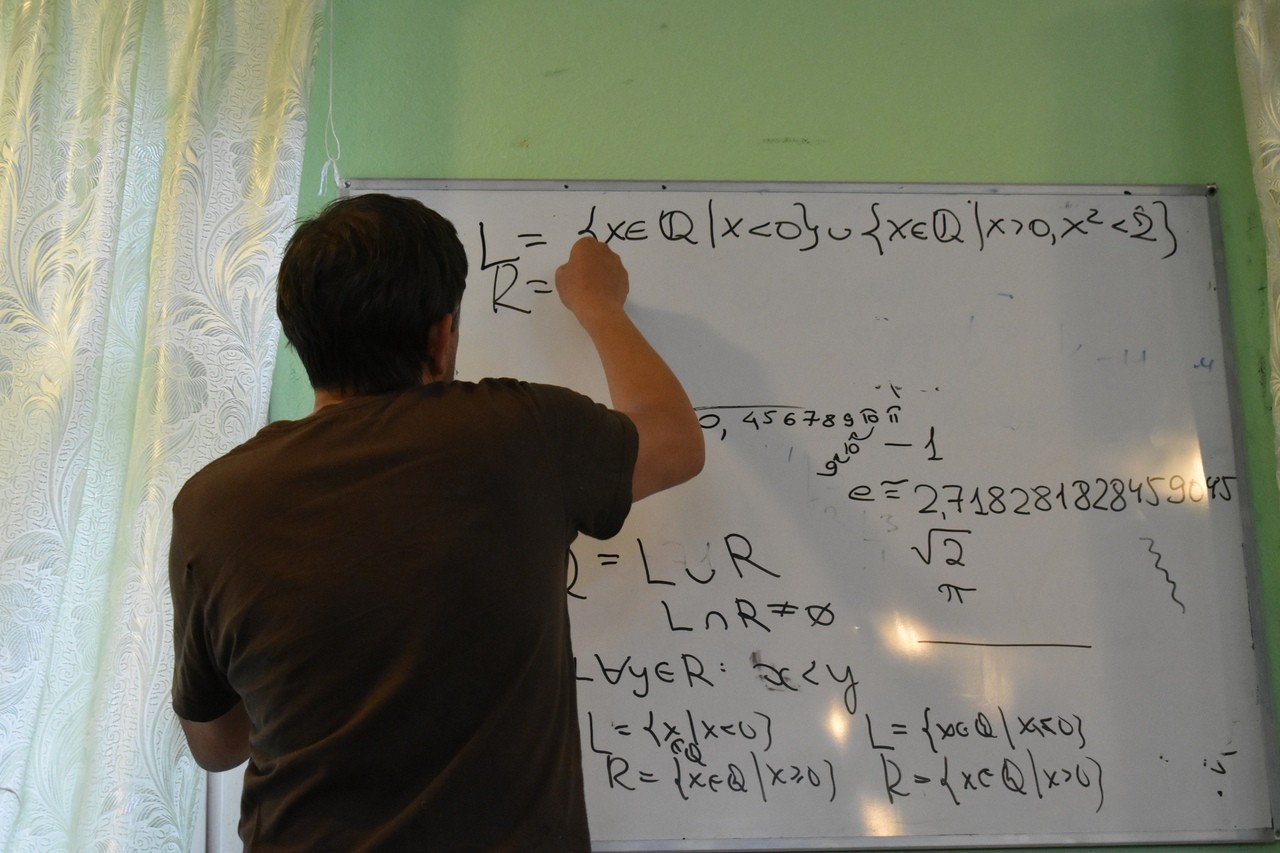 L = {x∈ℚ|x<0}∪{x∈ℚ|x>0, x²<2}
R =
0, 456789 10 11
9 10 — 1
e ≈ 2,718281828459045
√2
π
= L∪R
L∩R≠∅
∀y∈R: x<y
L = {x∈ℚ|x<0} L = {x∈ℚ|x≤0}
R = {x∈ℚ|x≥0} R = {x∈ℚ|x>0}